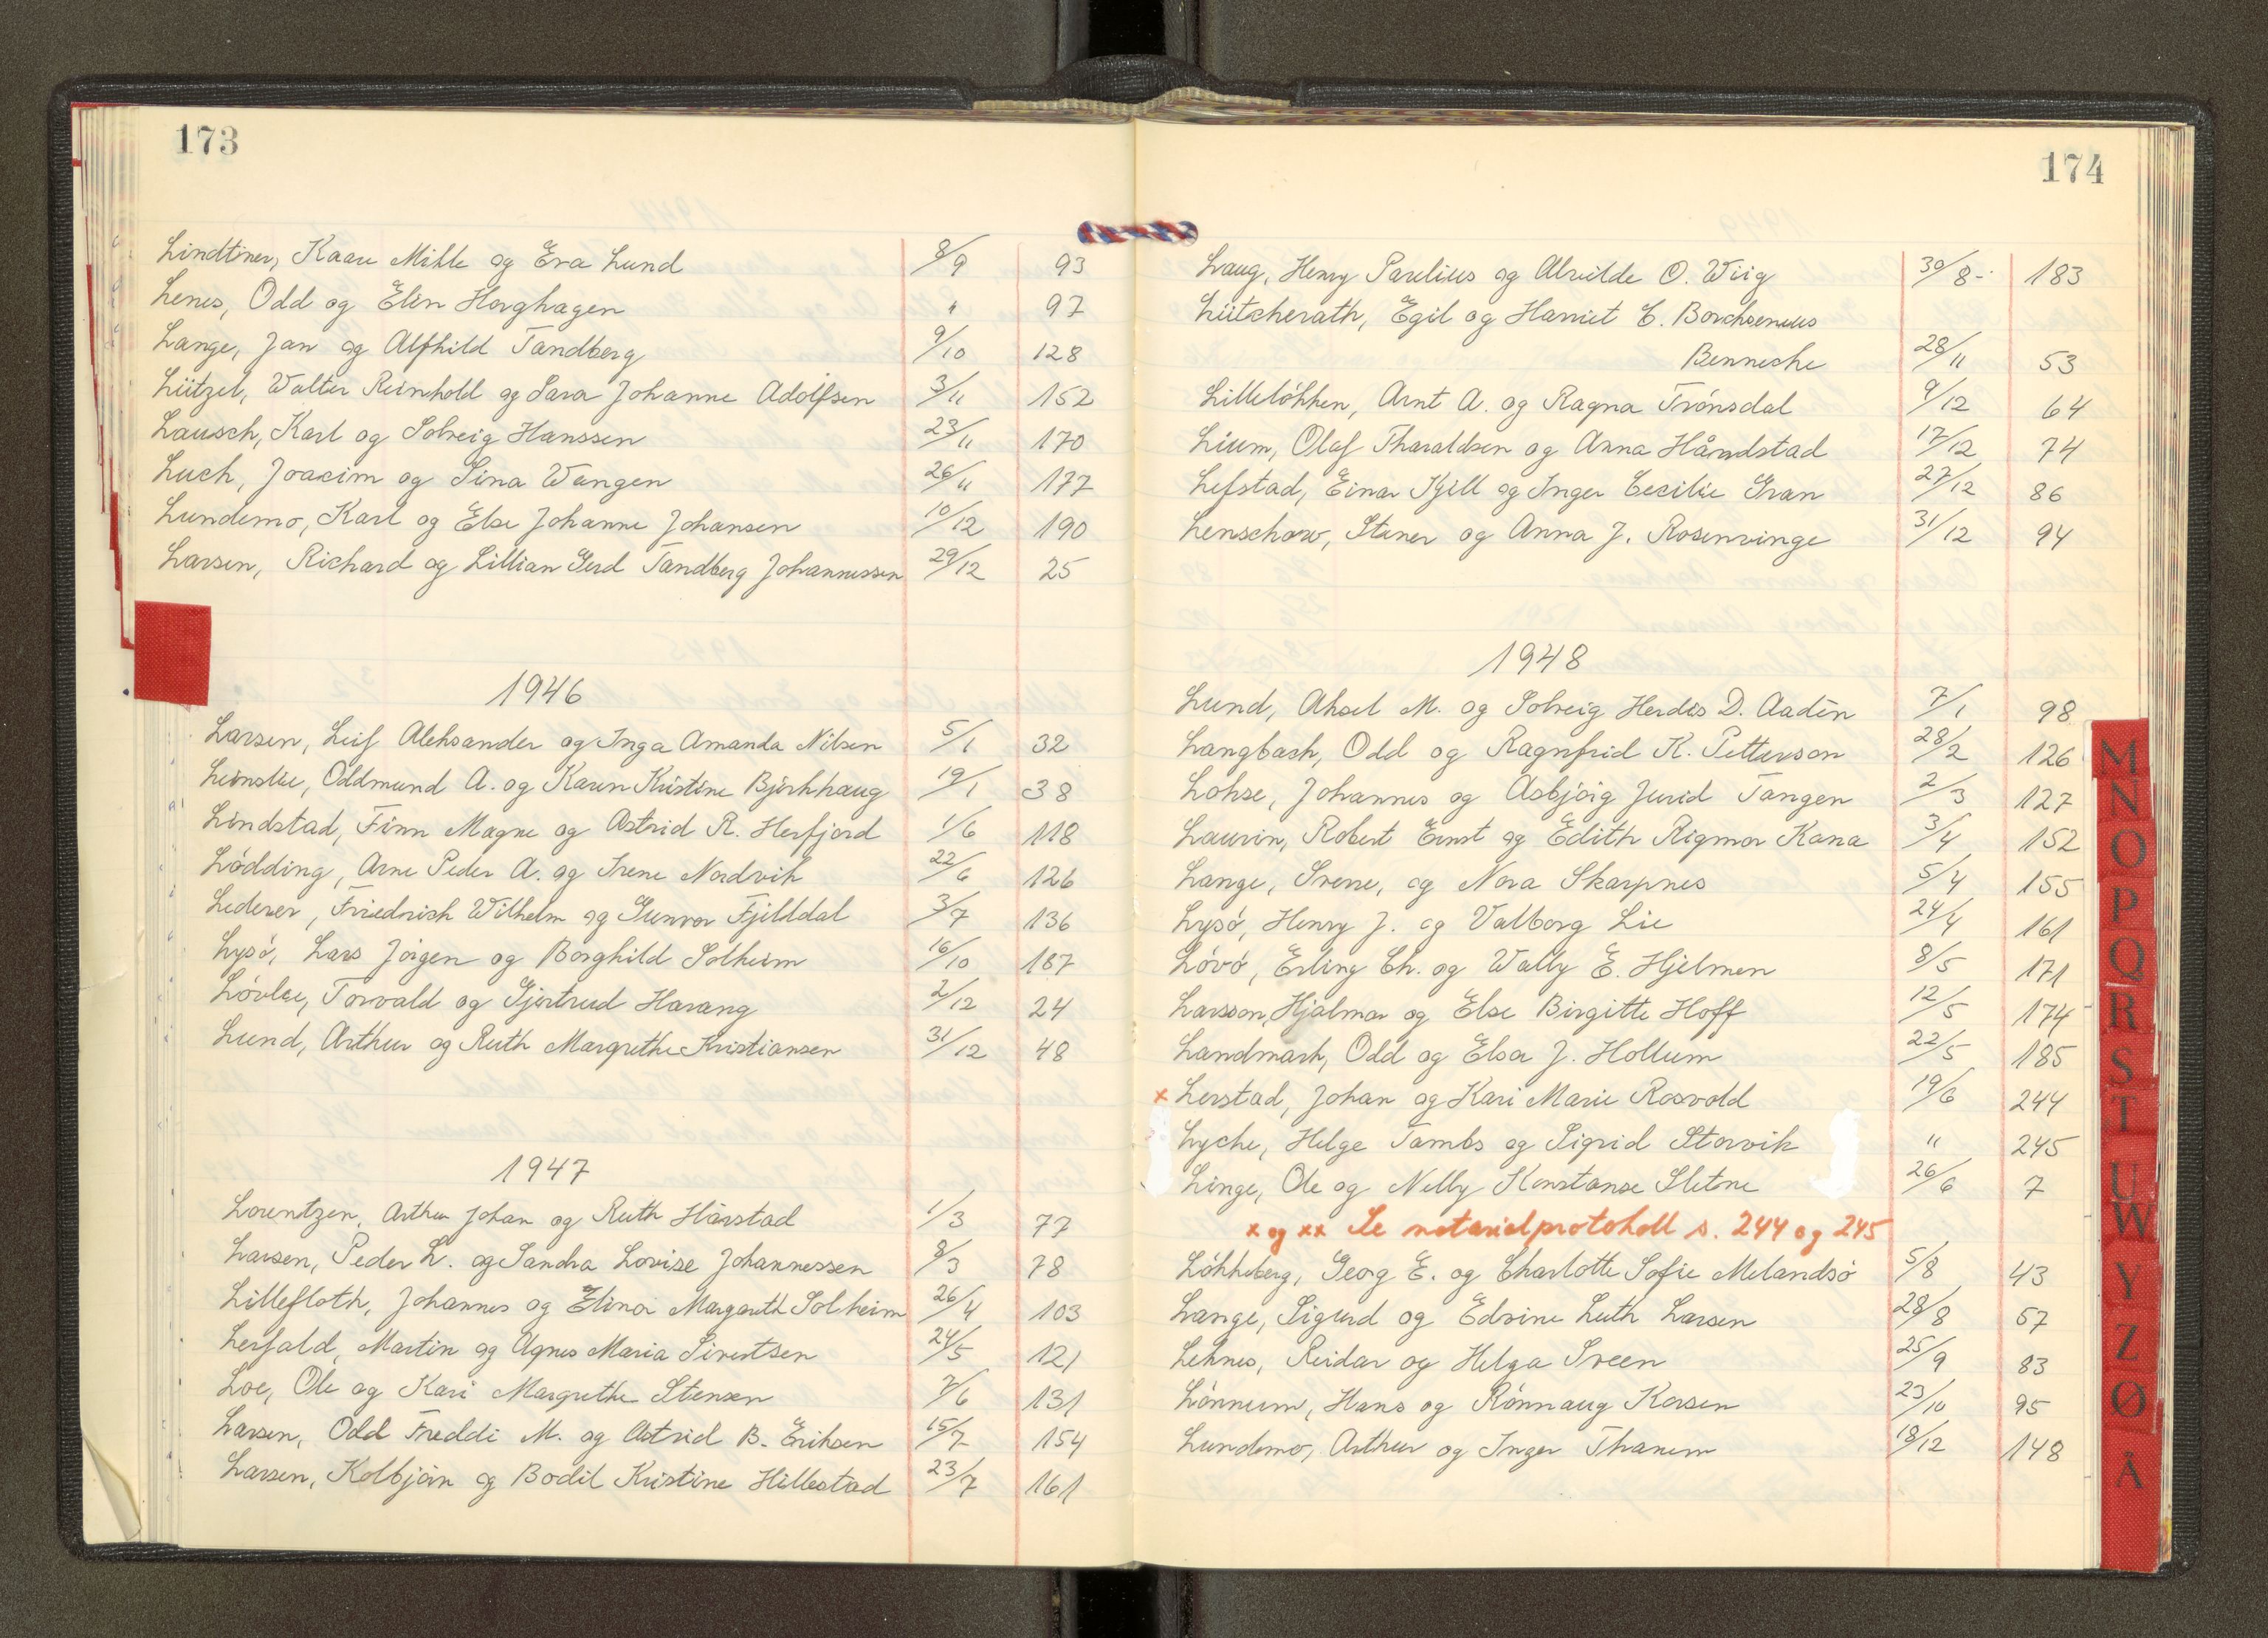 173
Lindtner, Kaare Mikle og Eva Lund 8/9 93
Lenes, Odd og Elin Horghagen " 97
Lange, Jan og Alfhild Tandberg 9/10 128
Lützel, Walter Reinhold og Sara Johanne Adolfsen 3/11 152
Lausch, Karl og Solveig Hanssen 23/11 170
Luch, Joacim og Sina Wangen 26/11 177
Lundemo, Karl og Else Johanne Johansen 10/12 190
Larsen, Richard og Lillian Gerd Tandberg Johannessen 29/12 25
1946
Larsen, Leif Aleksander og Inga Amanda Nilsen 5/1 32
Leinslie, Oddmund A. og Karen Kristine Björkhaug 19/1 38
Lindstad, Finn Magne og Astrid R. Herfjord 1/6 118
Lödding, Arne Peder A. og Irene Nordvik 22/6 126
Lederer, Friedrich Wilhelm og Gunvor Fjelldal 3/7 136
Lysö, Lars Jörgen og Borghild Solheim 16/10 187
Lövlie, Torvald og Gjertrud Harang 2/12 24
Lund, Arthur og Ruth Margrethe Kristiansen 31/12 48
1947
Lorentzen, Arthur Johan og Ruth Hårstad 1/3 77
Larsen, Peder L. og Sandra Lovise Johannessen 8/3 78
Lillefloth, Johannes og Elinor Margareth Solheim 26/4 103
Lerfald, Martin og Agnes Maria Sivertsen 24/5 121
Loe, Ole og Kari Margrethe Stensen 7/6 131
Larsen, Odd Freddi M. og Astrid B. Eriksen 15/7 154
Larsen, Kolbjörn og Bodil Kristine Hillestad 23/7 161
174
Laug, Henry Parelius og Alvilde O. Wiig 30/8- 183
Lütcherath, Egil og Harriet C. Borchsenius
Bennecke 28/11 53
Lillelökken, Arnt A. og Ragna Trönsdal 9/12 64
Lium, Olaf Tharaldsen og Anna Håndstad 17/12 74
Lefstad, Einar Kjell og Inger Cecilie Gran 27/12 86
Lenschow, Stener og Anna J. Rosenvinge 31/12 94
1948
Lund, Aksel M. og Solveig Herdis D. Aadén 7/1 98
Langbach, Odd og Ragnfrid K. Petterson 28/2 126
Lohse, Johannes og Asbjörg Jurid Tangen 2/3 127
Laurin, Robert Ernst og Edith Rigmor Kana 3/4 152
Lange, Svene, og Nora Skarpnes 5/4 155
Lysö, Henry J. og Valborg Lie 24/4 161
Lövö, Erling Ch. og Wally E. Hjelmen 8/5 171
Larsson, Hjalmar og Else Birgitte Hoff 12/5 174
Landmark, Odd og Elsa J. Hollum 22/5 185
x Lerstad, Johan og Kari Marie Rosvold 19/6 244
Lyche, Helge Tambs og Sigrid Storvik " 245
Linge, Ole og Nelly Konstanse Sletne 26/6 7
x og xx Se notarialprotokoll s. 244 og 245
Lökkeberg, Georg E. og Charlotte Sofie Melandsö 5/8 43
Lange, Sigurd og Edvine Luth Larsen 28/8 57
Leknes, Reidar og Helga Sveen 25/9 83
Lönnum, Hans og Rönnaug Korsen 23/10 95
Lundemo, Arthur og Inger Thanem 18/12 148
M
N
O
P
Q
R
S
T
U
W
Y
Z
Ø
Å